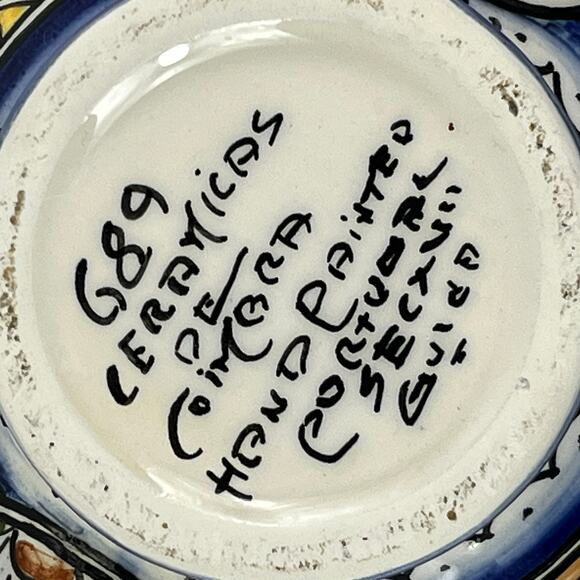 689
CERAMICAS
DE
COIMBRA
HAND PAINTED
PORTUGAL
SEC XVII